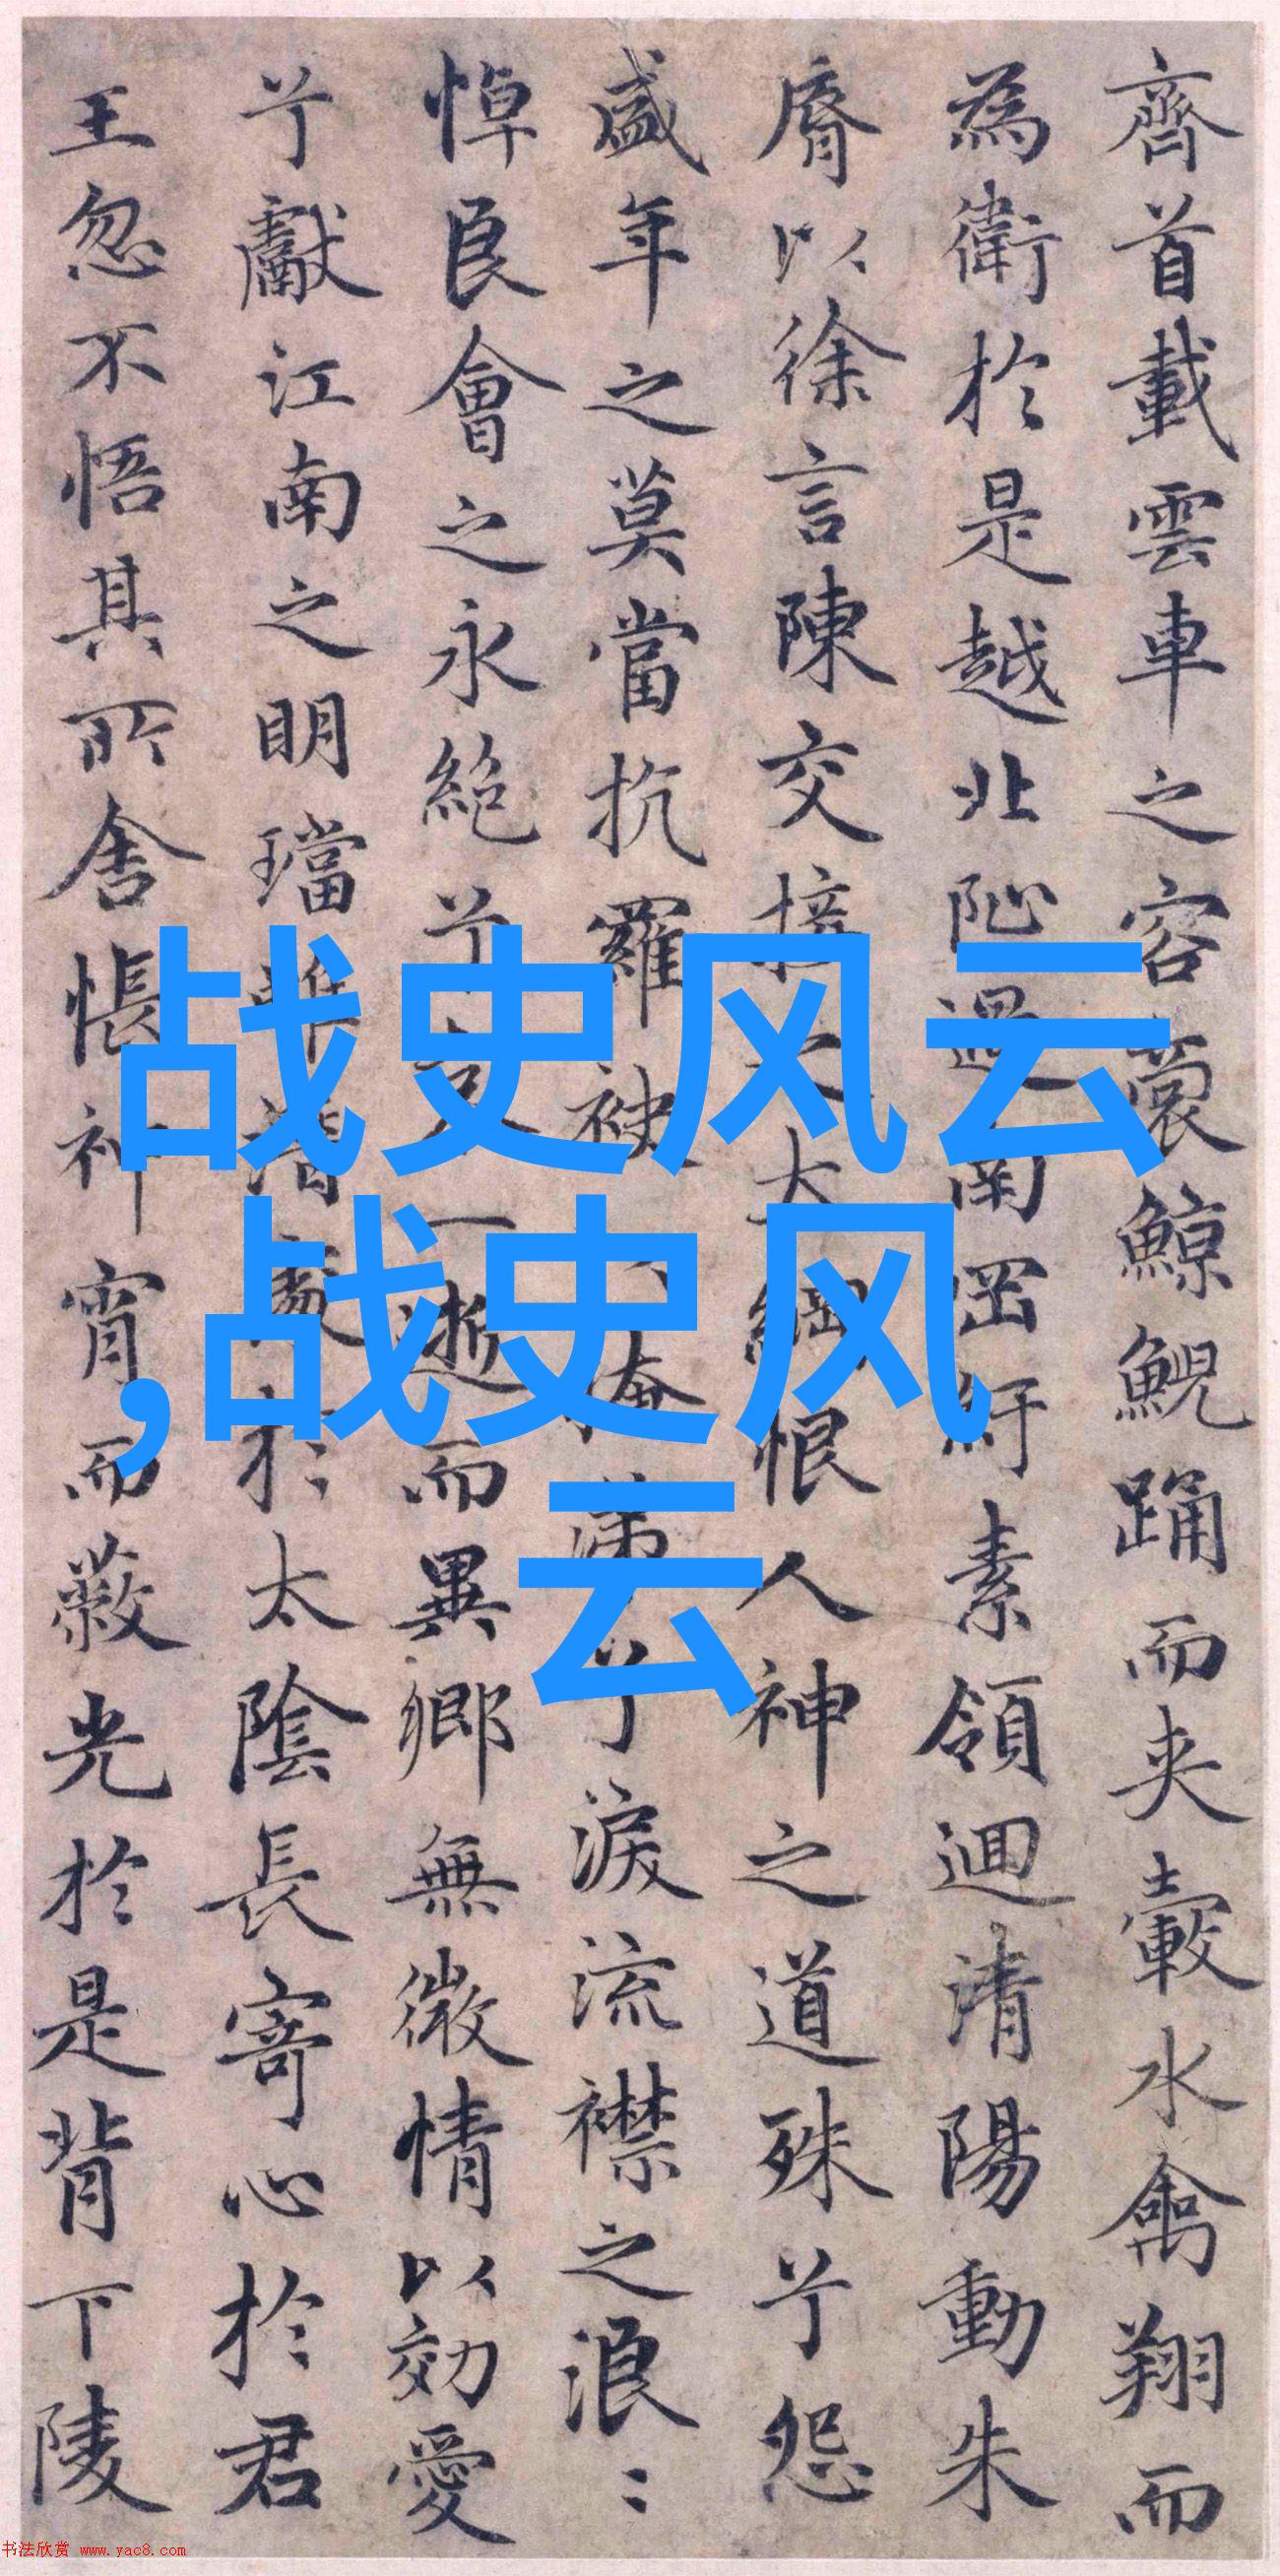 齊首載雲車之容裔鯨鯢踊而夾轂水禽翔而
為衛於是越北阯過南岡紆素領迴清陽動朱
脣以徐言陳交接之大綱恨人神之道殊兮怨
盛年之莫當抗羅袂以掩涕兮淚流襟之浪〻
悼良會之永絕兮哀一逝而異鄉無微情以効愛
兮獻江南之明璫雖潛處於太陰長寄心於君
王忽不悟其所舍悵神宵而蔽光於是背下陵
战史风云
,战史风
云
书法欣赏 www.yac8.com